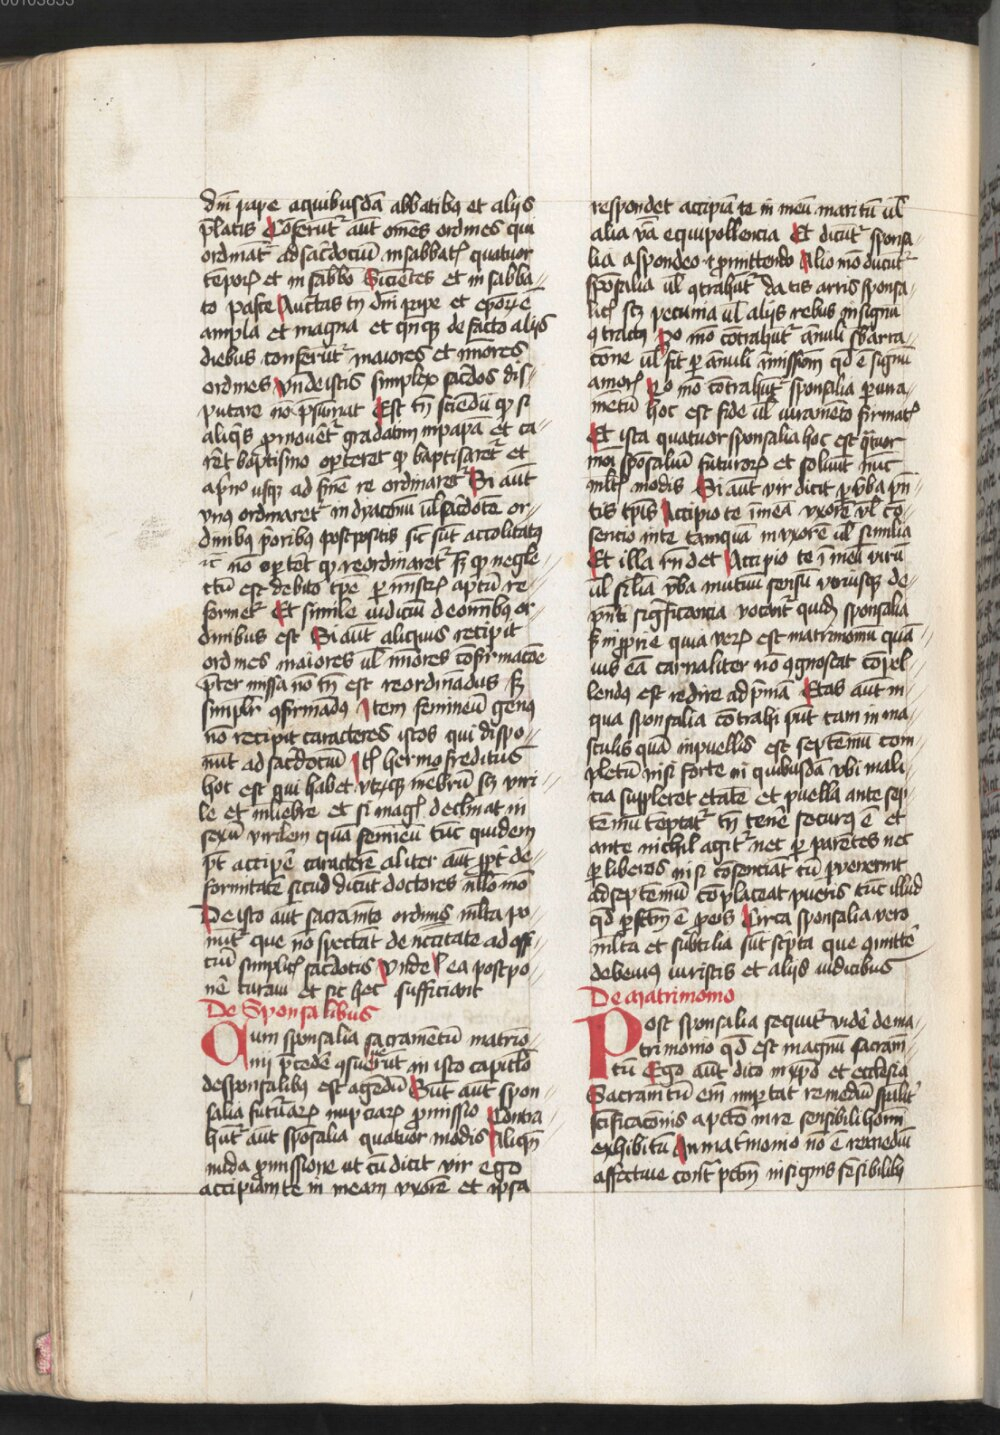 dn̄i pape aquibusdā abbatibꝯ et alijs
p̄latis Cōferūt᷑ aūt om̄es ordines qui
ordināt᷑ ad sac̄dociū in sabbatꝭ quatuor
tēporꝝ et in sabb̄o Sicientes et in sabba⸗
to pasce Auctās tn̄ dn̄i pape et ep̄orꝝ ē
ampla et magna et qn̄qꝫ de facto alijs
diebus conferūt᷑ maiores et mīores
ordines vn̄ de istis simplex sac̄dos dis⸗
putare nō p̄sumat Est tn̄ sciendū qꝫ si
aliq̄s ꝓmouet᷑ gradatim in papā et ca⸗
ret baptismo op̄teret qꝫ baptisaret᷑ et
a p̄mo usqꝫ ad finē re ordinaret᷑ Si aūt
vnꝯ ordinaret᷑ in dyaconū ul̄ sac̄dotē or⸗
dinibꝯ p̄oribꝯ postpositis sic̄ sūt accolitatꝯ
nō op̄tet qꝫ reordinaret᷑ sꝫ qꝫ negle⸗
ctū est debito tp̄e ꝑ mīstrꝝ aptū re⸗
formet᷑ Et simile iudiciū de om̄ibꝯ or⸗
dinibus est Si aūt aliquis recipit
ordines maiores ul̄ mīores cōfirmacōe
p̄ter missa nō tn̄ est reordinādus sꝫ
simplr̄ ꝯfirmādꝯ Item femineū genꝯ
nō recipit caracteres istos qui dispo⸗
nūt ad sac̄dociū Itē hermofreditus
hoc est qui habet vtrūqꝫ mēbrū sꝫ viri⸗
le et mliebre et si magꝭ declinat in
sexū virilem quā femīeū tūc quidem
pt̄ accipē caracterē aliter aūt ꝓpt̄ de⸗
formitatē sicud dicūt doctores nllō mō
De isto aūt sacramēto ordinis mlta po⸗
nūt᷑ que nō spectāt de nc̄citate ad offi⸗
ciū simplicꝭ sac̄dotis vnde ea postpo⸗
nē curaui et sic hec sufficiant
De Sponsalibus
Quum sponsalia sacramētū matrio⸗
nij p̄cedē ꝯsueuerūt in isto capitlo
desponsalibꝯ est agendū Sunt aūt spon⸗
salia futurarꝝ nupciarꝝ ꝓmissio Contra⸗
hūt᷑ aūt spōsalia quatuor modis Aliqn̄
nuda ꝓmissione ut cū dicit vir ego
accipiam te in meam vxorē et ipsa
respondet accipiā te in meū maritū ul̄
alia v̄ba equipollencia Et dicūt᷑ sponsa⸗
lia a spondeo ꝓmittendo Alio mō dicūt᷑
spōsalia ul̄ ꝯtrahūt᷑ datis arris sponsa⸗
licijs scꝫ pecunia ul̄ alijs rebus in signū
ꝯtractꝯ 3o mō cōtrahūt᷑ ānuli sbarra⸗
cōne ul̄ fit ꝑ ānuli īmissiom qd̄ ē signū
amorꝭ 4o mō cōtrahūt᷑ sponsalia ꝑ iura⸗
mētū hoc est fide ul̄ iuramēto firmatꝭ
Et ista quatuor sponsalia hoc est q̄tuor
moi spōsaliū futurorꝝ et soluūt᷑ nūc
mltꝭ modis Si aūt vir dicit ꝑ v̄ba pn̄⸗
tis tp̄is Accipio te ī meā vxorē ul̄ cō⸗
sencio in te tamquā in vxorē ul̄ similia
Et illa rn̄det Accipio te ī meū virū
ul̄ silīa v̄ba mutuū sensū vtriusqꝫ de⸗
pn̄ti sigficancia vocant᷑ quidē sponsalia
sꝫ inꝓprie quia verꝝ est matrimoniū quā⸗
uis eā carnaliter nō ꝯgnoscat cōpel⸗
lendꝯ est redire ad p̄mā Etas aūt in
qua sponsalia cōtrahi pn̄t tam in ma⸗
sculis quā in puellis est septēniū com⸗
pletū nisi forte in quibusdā vbi mali⸗
cia supleret etatē et puella ante sep⸗
tēniū tēptat᷑ tn̄ tenē securꝯ ē et
ante nichil agit᷑ nec ꝑ parētes nec
ꝑ liberos nisi cōsenciāt cū ꝑuenerint
ad septēniū cōplaceat pueris tūc illud
qd̄ ꝑ fctm̄ ē ꝑ eos Circa sponsalia vero
mlta et subtilia sūt sc̄pta que dimittē
debemꝯ iuristis et alijs iudicibus
De matrimonio
Post sponsalia sequit᷑ vidē de ma⸗
trimonio qd̄ est magnū sacram̄⸗
tū Ego aūt dico in xp̄o et ecclesia
Sacramētū em̄ īmportat remediū sp̄ūlit᷑
sc̄ificaconis a pctō in re sensibili hom̄i
exhibitū An matrimonio nō ē remediū
affectiue cont᷑ pctm̄ in signis sēsibilibꝯ